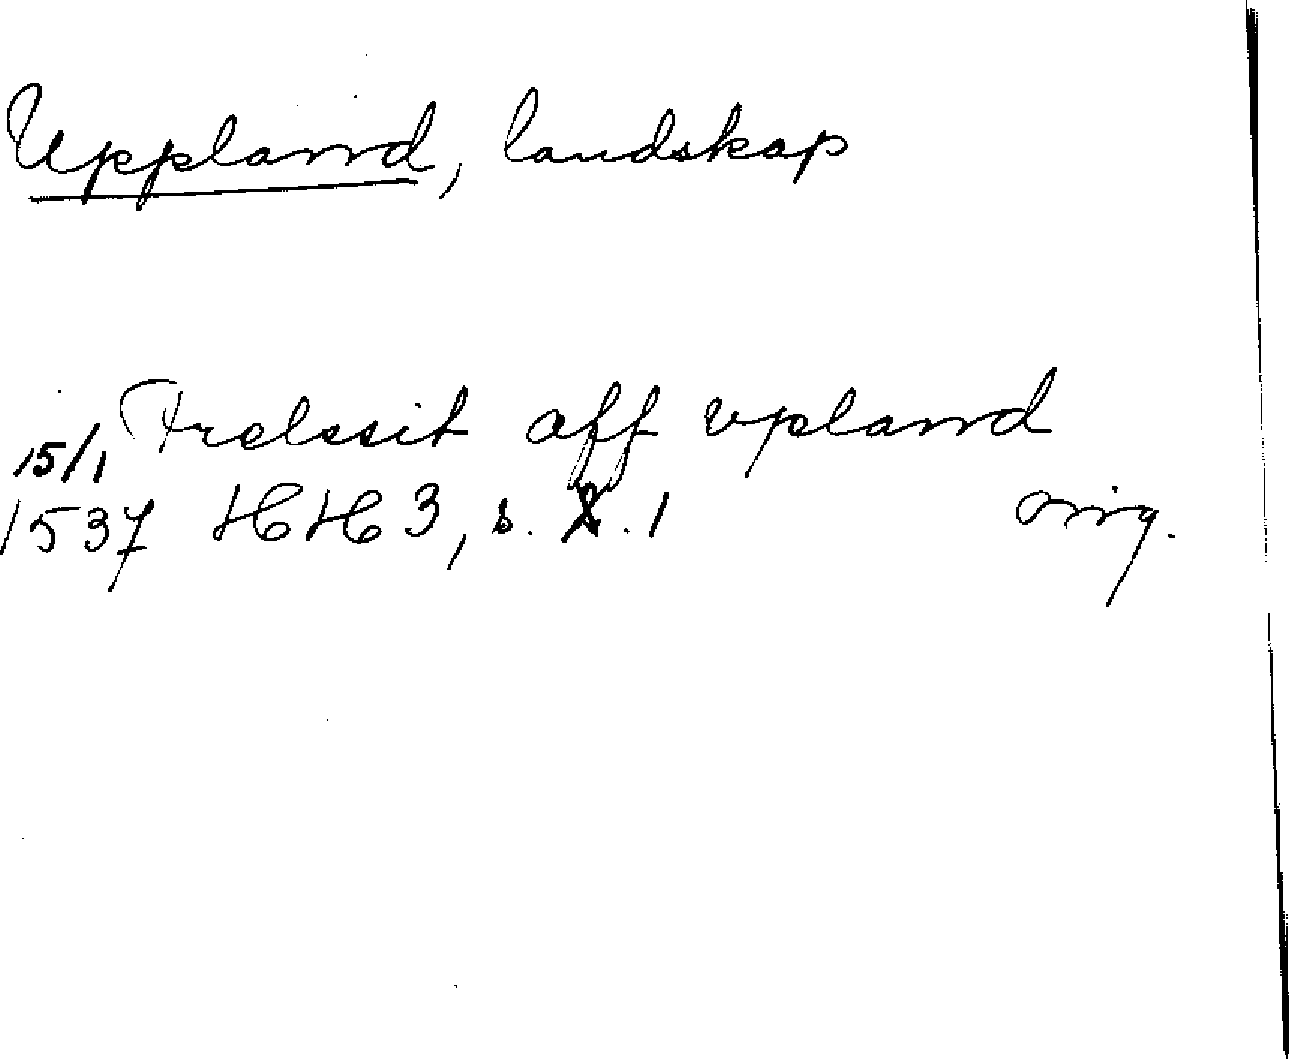 Uppland, landskap
15/1 Frelssit aff vpland
1537 HH 3, s. 1 orig.